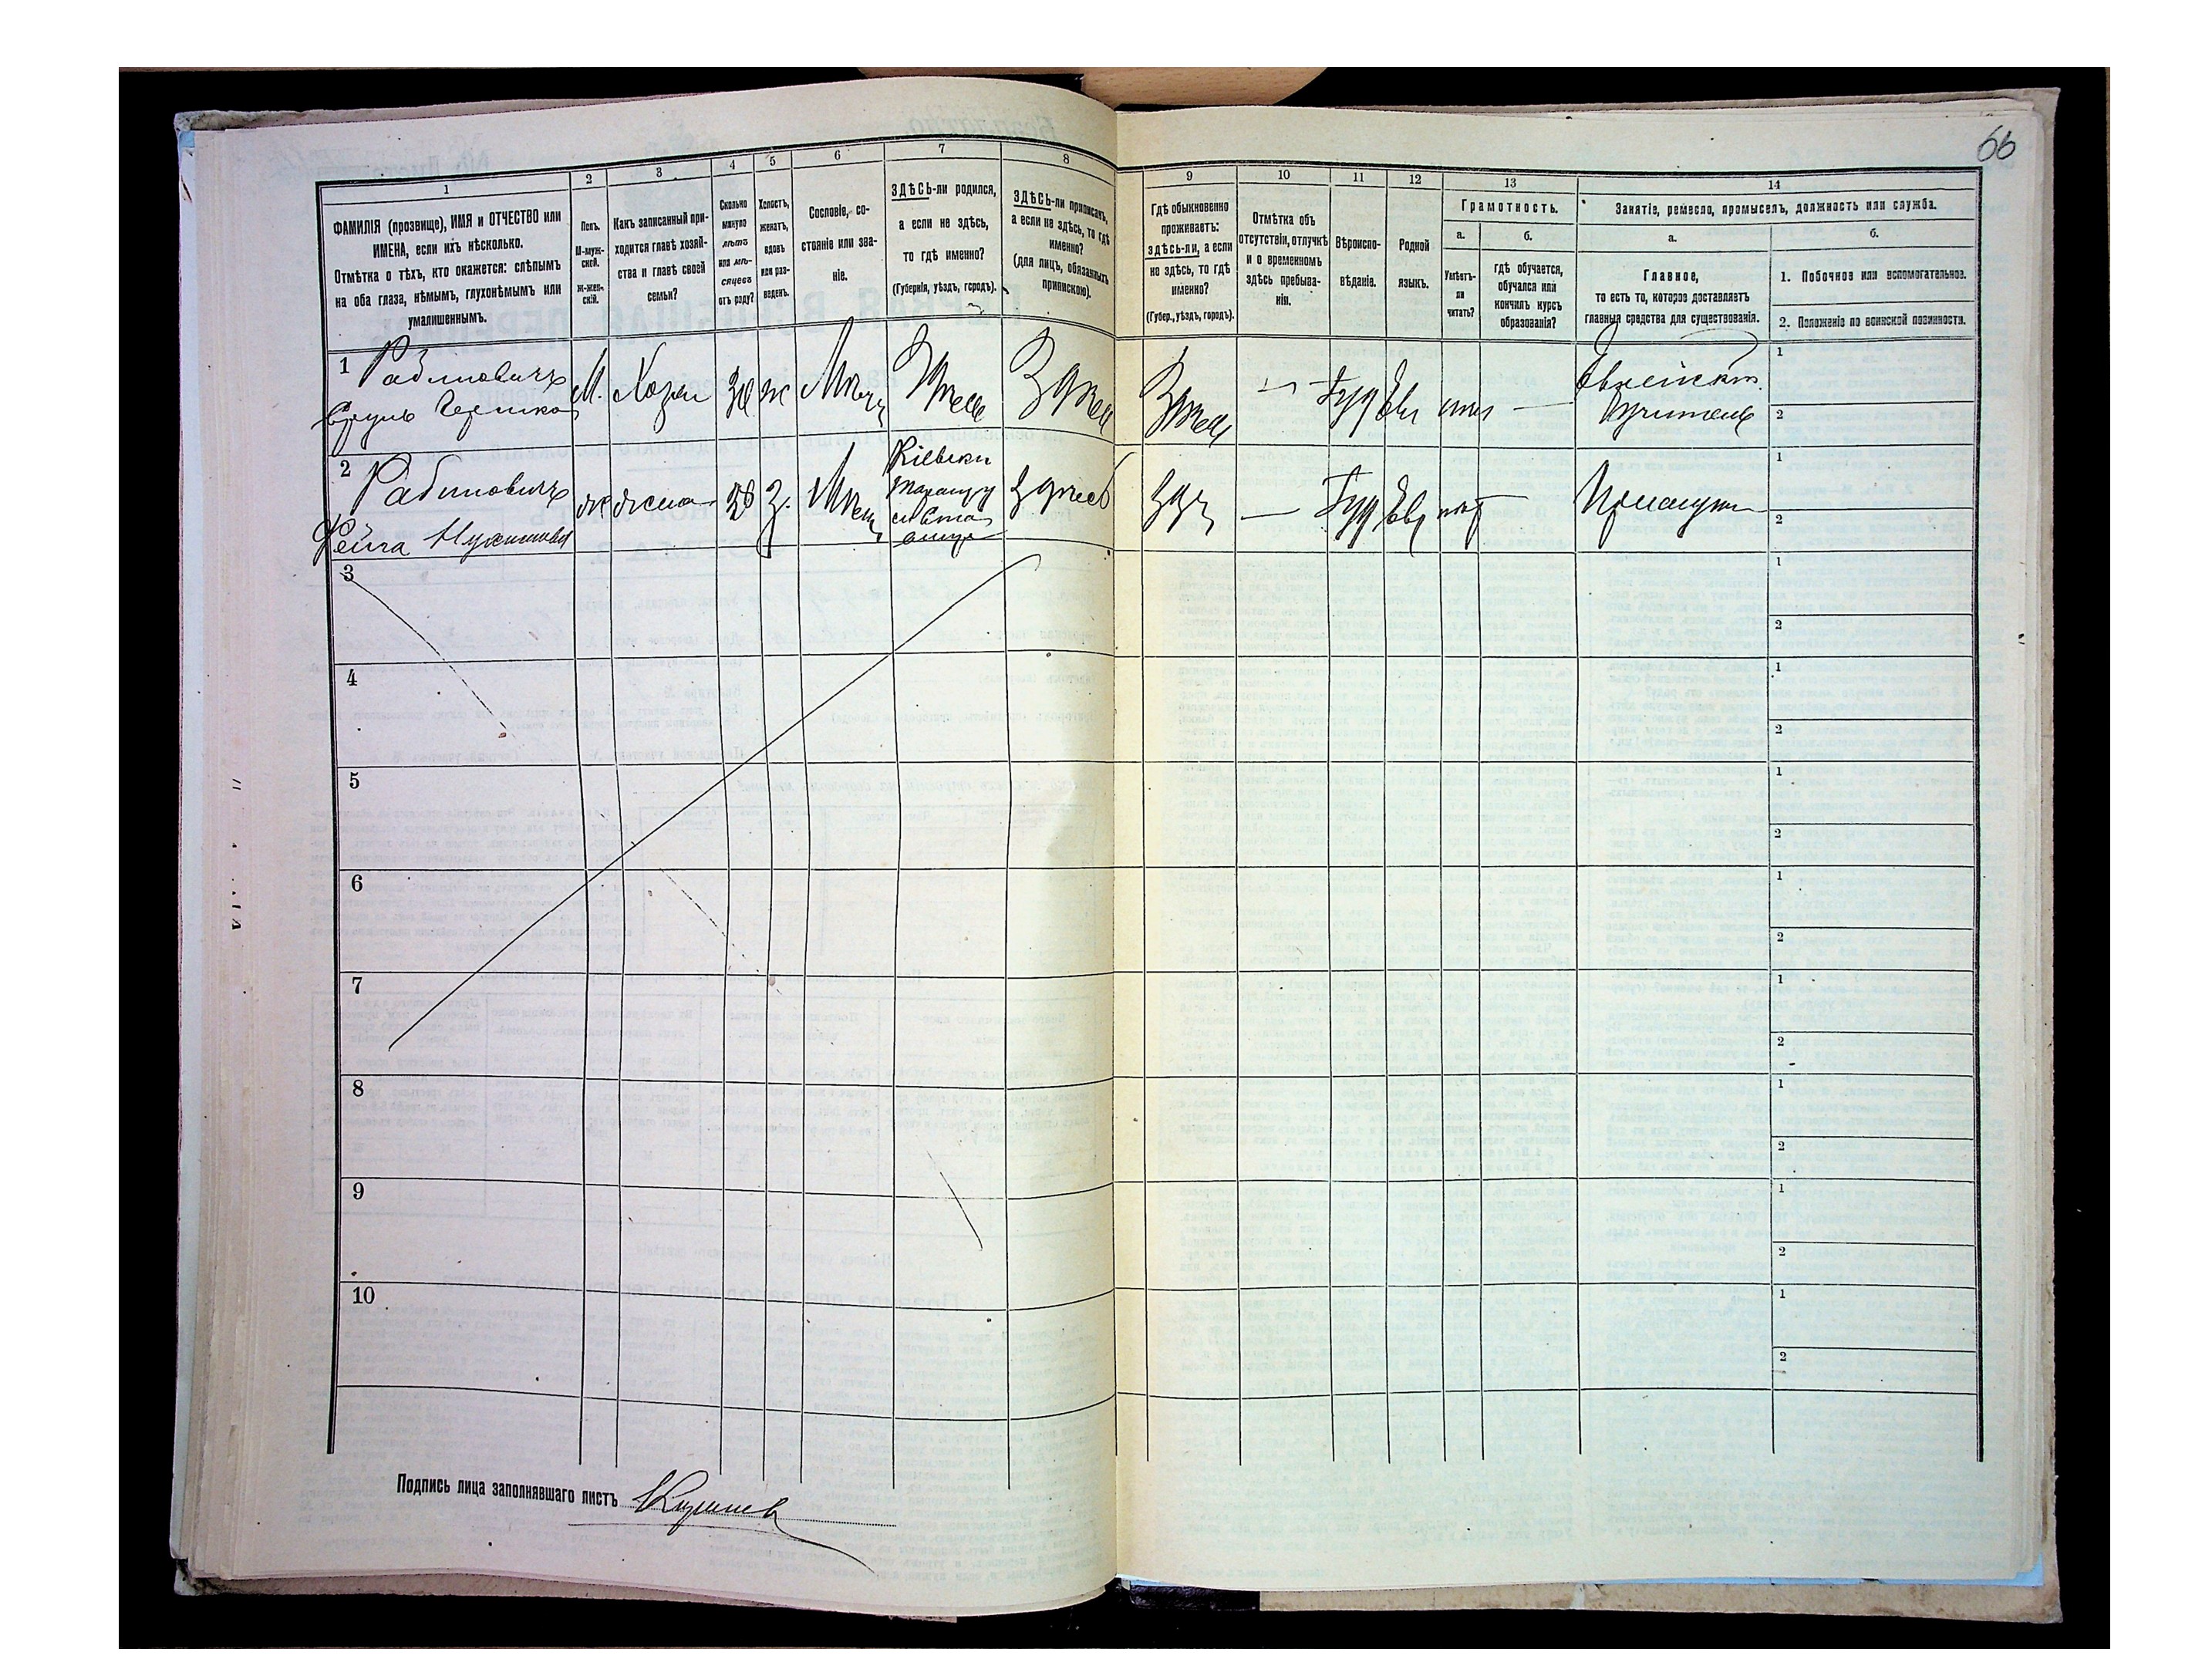 66
1 2 3 4 5 6 7 8 9 10 11 12 13 14
ФАМИЛІЯ (прозвище), ИМЯ и ОТЧЕСТВО или
ИМЕНА, если ихъ нѣсколько.
Отмѣтка о тѣхъ, кто окажется: слѣпымъ
на оба глаза, нѣмымъ, глухонѣмымъ или
умалишеннымъ.
Полъ.
М-муж-
ской.
ж-жен-
скій.
Какъ записанный при-
ходится главѣ хозяй-
ства и главѣ своей
семьи?
Сколько
минуло
лѣтъ
или мѣ-
сяцевъ
отъ роду?
Холостъ,
женатъ,
вдовъ
или раз-
веденъ.
Сословіе, со-
стояніе или зва-
ніе.
ЗДѢСЬ-ли родился,
а если не здѣсь,
то гдѣ именно?
(Губернія, уѣздъ, городъ).
ЗДѢСЬ-ли приписанъ,
а если не здѣсь, то гдѣ
именно?
(для лицъ, обязанныхъ
припискою).
Гдѣ обыкновенно
проживаетъ:
здѣсь-ли, а если
не здѣсь, то гдѣ
именно?
(Губер., уѣздъ, городъ).
Отмѣтка объ
отсутствіи, отлучкѣ
и о временномъ
здѣсь пребыва-
ніи.
Вѣроиспо-
вѣданіе.
Родной
языкъ.
Грамотность.
а. б.
Умѣетъ-
ли
читать?
гдѣ обучается,
обучался или
кончилъ курсъ
образованія?
Занятіе, ремесло, промыселъ, должность или служба.
а. б.
Главное,
то есть то, которое доставляетъ
главныя средства для существованія.
1. Побочное или вспомогательное.
2. Положеніе по воинской повинности.
1 Рабиновичъ
М. Хозя ж Мѣщ Здѣсь Здѣсь Здѣсь — Іуд Евр — Еврейск.
Учитель
1
2
2 Рабиновичъ
Фейга
ж жена 28 З. Мѣщ
Кіевски
Таращ у
Здѣсь Здѣ — Іуд Евр
1
2
3
1
2
4
1
2
5
1
2
6
1
2
7
1
2
8
1
2
9
1
2
10
1
2
Подпись лица заполнявшаго листъ